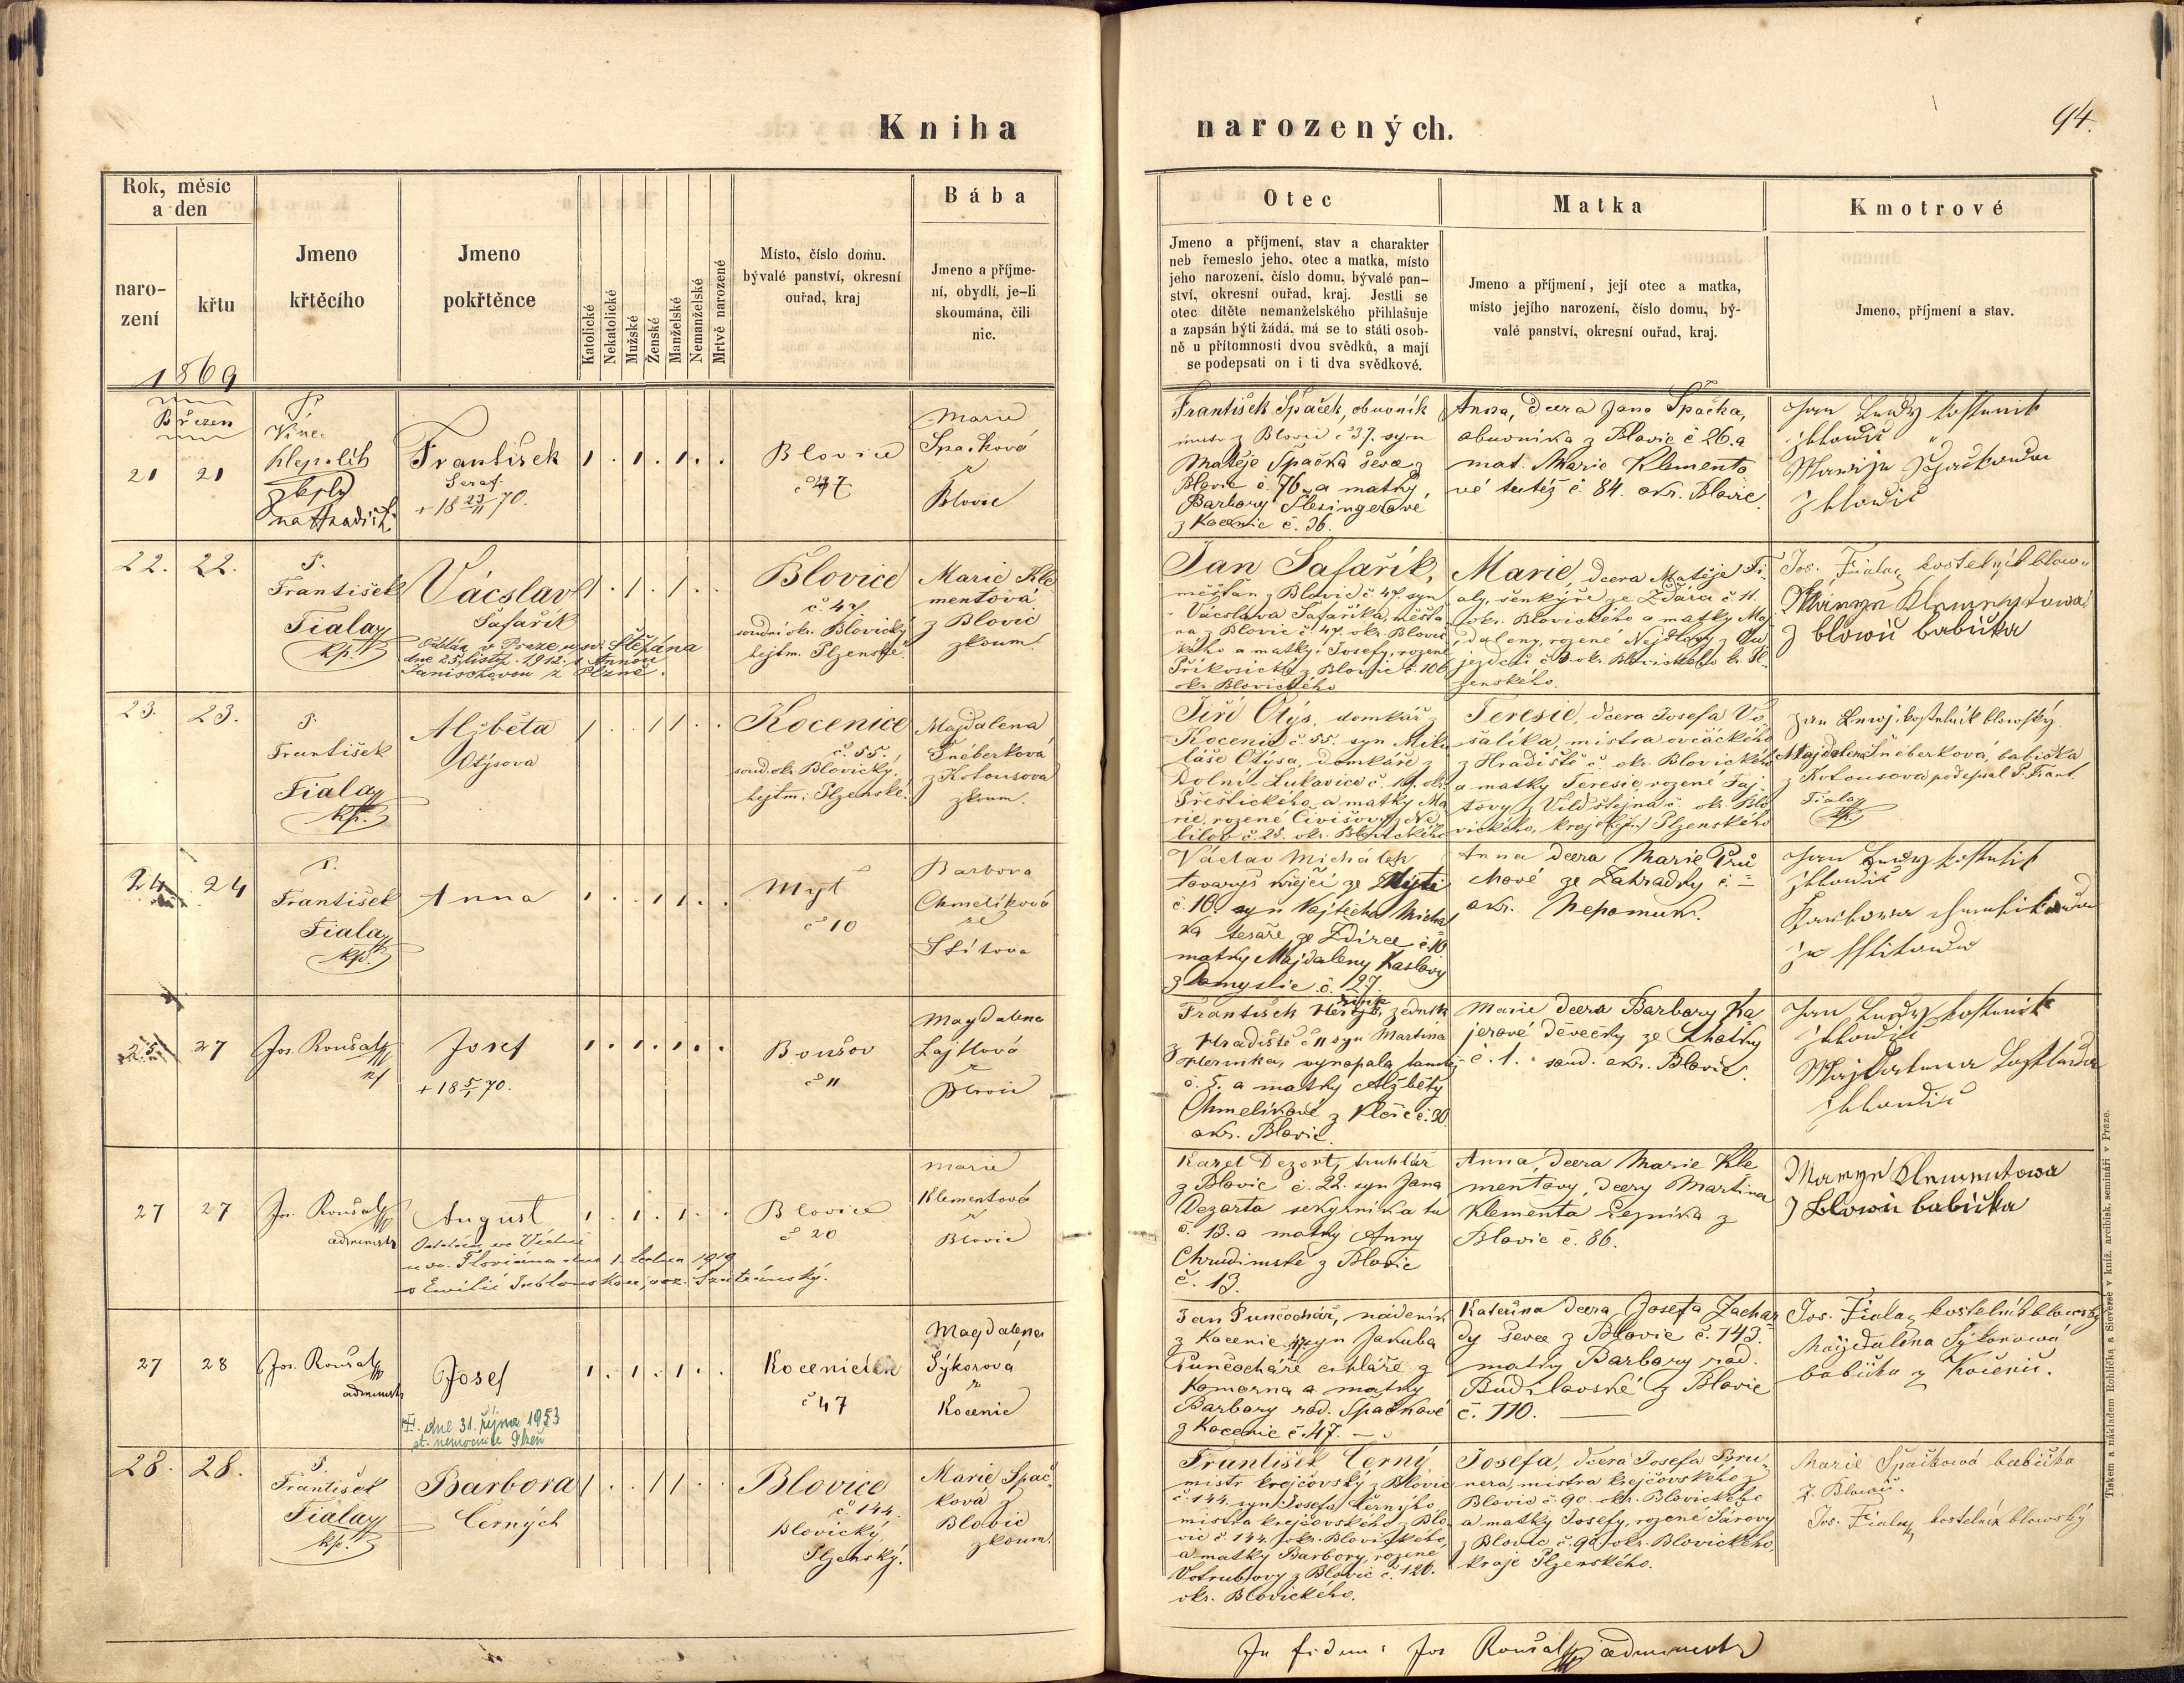 Kniha
narozených.
94.
Rok, měsíc
a den
naro-
zení
křtu
1869
Jmeno
křtěcího
Jmeno
pokřtěnce
Katolické
Nekatolické
Mužské
Ženské
Manželské
Nemanželské
Mrtvě narozené
Místo, číslo domu.
bývalé panství, okresní
ouřad, kraj
Bába
Jmeno a příjme-
ní, obydlí, je-li
skoumána, čili
nic.
Otec
Jmeno a příjmení, stav a charakter
neb řemeslo jeho, otec a matka, místo
jeho narození, číslo domu, bývalé pan-
ství, okresní ouřad, kraj. Jestli se
otec dítěte nemanželského přihlašuje
a zapsán býti žádá, má se to státi osob-
ně u přítomnosti dvou svědků, a mají
se podepsati on i ti dva svědkové.
Matka
Jmeno a příjmení, její otec a matka,
místo jejího narození, číslo domu, bý-
valé panství, okresní ouřad, kraj.
Kmotrové
Jmeno, příjmení a stav.
Březen
21 21
P.
František
Seraf.
+ 18 23/11 70.
Blovice
č 37
Marie
Spačková
z
Blovic
František Špaček, obuvník
mistr z Blovic č 37. syn
Matěje Špačka ševce z
Blovic č. 76 a matky
Barbory Šlesingerové
z Kocenic č. 36.
Anna, dcera Jana Špačka,
obuvníka z Blovic č 26. a
mat. Marie Klemento
vé tutéž č. 84. okr. Blovic.
22. 22.
P.
František
Fialay
kp.
Vácslav
Šafařík
Oddán v Praze u sv. Štěpána
dne 25. listop. 1912. s Annou
Janischovou z Plzně.
Blovice
č. 47.
soudní okr. Blovický
hejtm. Plzenské.
Marie Kle
mentová
z Blovic
zkoum.
Jan Šafařík,
měšťan z Blovic č 47. syn
Vácslava Šafaříka, měšťa
na z Blovic č. 47. okr. Blovic
kého a matky Josefy, rozené
Příkosické z Blovic č. 106
okr. Blovického
Marie, dcera Matěje Fi
aly, šenkýře ze Ždáru č. 11.
okr. Blovického a matky Ma
daleny, rozené Nejdlovy z Ou
jezdci č 3. okr. Blovického kr. Pl.
zenského.
Jos. Fialay kostelník blow.
z blowic babička
23. 23.
P.
František
Fialay
kp.
Alžběta
Otýsova
Kocenice
č. 55.
soud. okr. Blovický.
hejtm: Plzenské.
Majdalena
Šnéberková
z Kotousova
zkoum.
Jiří Otýs, domkář z
Kocenic č 55. syn Miku
láše Otýsa, domkáře z
Dolní Lukavice č. 19. okr.
Přeštického a matky Ma
rie, rozené Čivišovy z Ne
bílov č. 28. okr. Blovického
Teresie, dcera Josefa Vo
šalíka, mistra ovčáckého
z Hradiště č. okr. Blovického
a matky Teresie, rozené Faj
tovy z Vildštejna č. okr. Blo
vického, kraje Plzenského
Jan kostelník blowský.
Majdalena Šnéberková, babička
z Kotousova podepsal P. Frant.
Fialay
kp.
24 24
P.
František
Fialay
kp.
Anna
Myť
č 10
Barbora
Chmelíková
ze
Štítova
Václav Michálek
tovaryš krejčí ze Mýti
č. 10. syn Vojtěcha Michal
ka tesaře ze Zdirce č. 10
matky Majdaleny Kaslovy
z Domyslic č. 127.
Anna dcera Marie Prů
chové ze Zahrádky č. =
okr. Nepomuk.
25. 27
Jos. Roušal
Josef
+ 18 5/1 70.
Boušov
č 11
Magdalena
Lajtlová
z
Blovic
z Hradiště č 11 syn Martina
č. 5. a matky Alžběty
Chmelíkové z Kleše č. 30.
okr. Blovic.
Marie dcera Barbory Ka
jerové děvečky ze Lhotky
č. 1. soud. okr. Blovic.
27 27
Jos. Roušal
administr
August
Oddán ve Vídni
u sv. Floriána dne 1. ledna 1919
s Emilií
Blovice
č 20
Marie
Klementová
z
Blovic
Karel Dezort, truhlář
z Blovic č. 22. syn Jana
Dezorta tu
č. 13. a matky Anny
Chrudimské z Blovic
č. 13.
Anna, dcera Marie Kle
mentovy, dcery Martina
Klementa řezníka z
Blovic č. 86.
z Blowic babička
27 28
Jos. Roušal
administr
Josef
dne 31. října 1953
st. nemocnice Plzeň
Kocenice
č 47
Magdalena
Sýkorová
z
Kocenic
Jan Punčochář, nádeník
z Kocenic syn Jakuba
Punčocháře cihláře z
Komorna a matky
Barbory rod. Špačkové
z Kocenic č. 47.
Kateřina dcera Josefa Zachar
dy ševce z Blovic č. 143.
matky Barbory rod.
Budilovské z Blovic
č. 110.
Jos. Fialay kostelník blowský
Majdalena Sýkorowá
babička z Kočenic.
28. 28.
P.
František
Fialay
kp.
Barbora
Černých
Blovice
č 144.
Blovický
Plzenský.
Marie Špač
ková z
Blovic
zkoum.
František Černý,
mistr krejčovský z Blovic
č. 144. syn Josefa Černýho,
mistra krejčovského z Blo
vic č. 144. okr. Blovického,
a matky Barbory, rozené
Votrubovy z Blovic č. 120.
okr. Blovického.
Josefa, dcera Josefa Bru
nera, mistra krejčovského z
Blovic č. 90. okr. Blovického
a matky Josefy, rozené Šárovy
z Blovic č. 90 okr. Blovického
kraje Plzenského.
Marie Špačková babička
z Blowic.
Jos. Fialay kostelník blowský
In fidem: Jos Roušal administr
Tiskem a nákladem Rohlíčka a Sieverse v kníž. arcibisk. semináři v Praze.